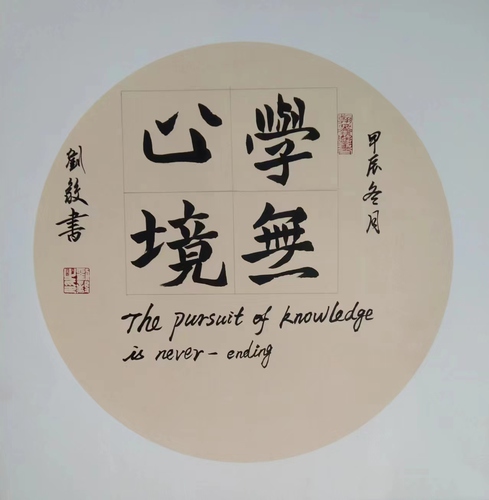 甲辰冬月
學無
止境
The pursuit of knowledge
is never - ending
書